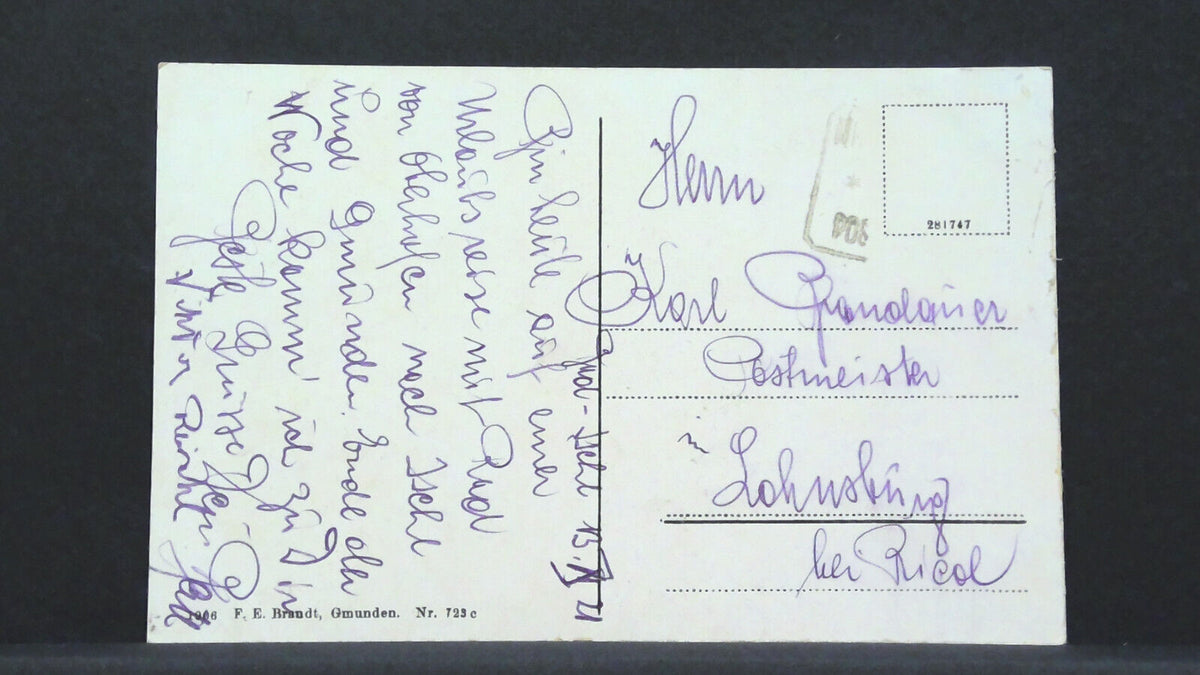 Bad-Ischl 13.
Bin heute auf einer
Urlaubsreise mit Rud
von Oberhofen nach Ischl
und Gmunden. Ende der
Woche komm' ich zu Dir
Beste Grüsse
Viktor
Herrn
Karl Grandauer
Postmeister
in
Lohnsburg
bei Ried
281747
POS
1906 F. E. Brandt, Gmunden. Nr. 723c